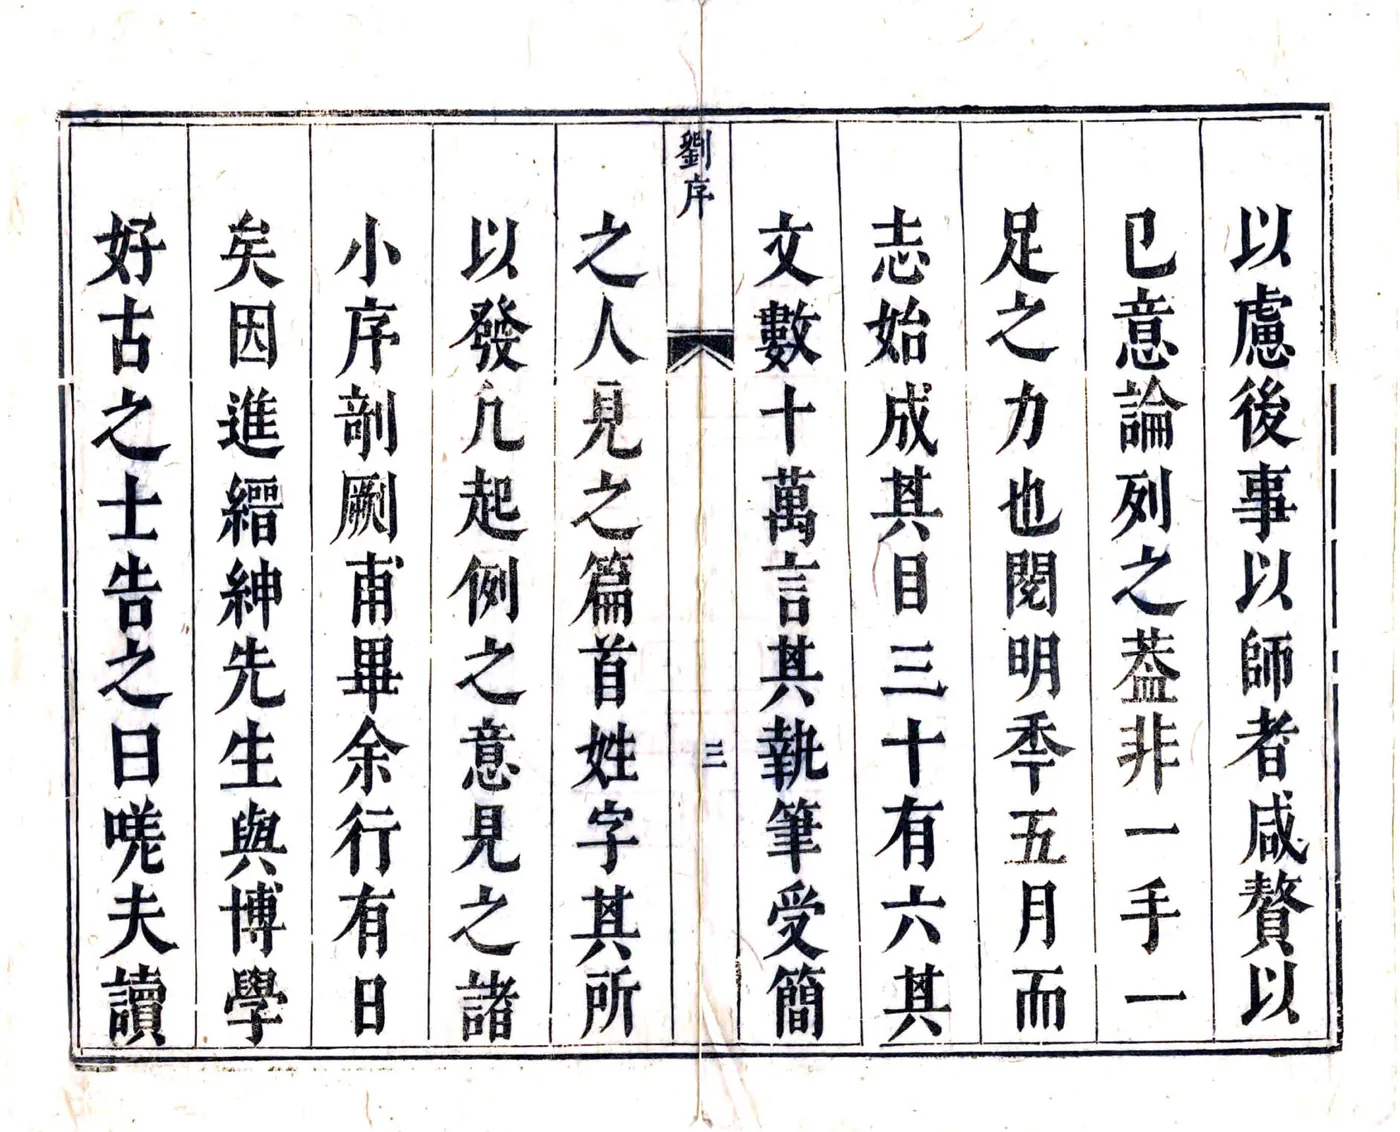 以慮後事以師者咸贅以
已意論列之葢非一手一
足之力也閱明秊五月而
志始成其目三十有六其
文數十萬言其執筆受簡
劉序
三
之人見之篇首姓字其所
以發凡起例之意見之諸
小序剞劂甫畢余行有日
矣因進縉紳先生與博學
好古之士告之曰嘵夫讀